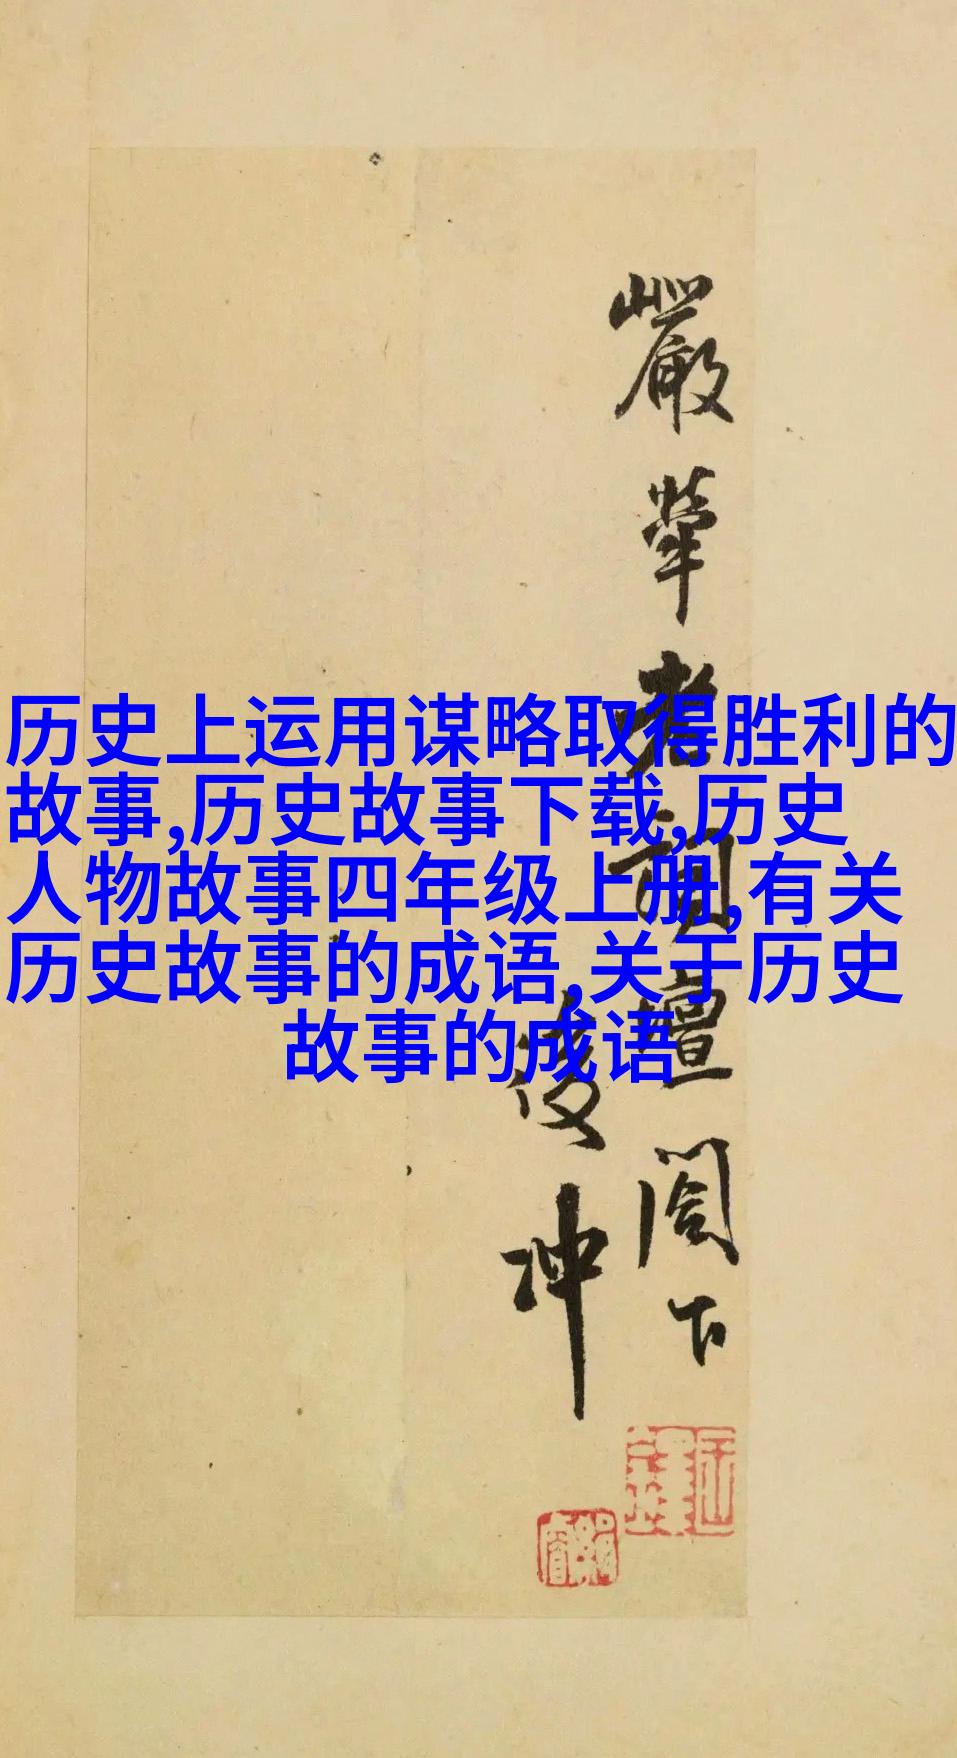 历史上运用谋略取得胜利的
故事,历史故事下载,历史
人物故事四年级上册,有关
历史故事的成语,关于历史
故事的成语
嚴犖老詞壇閣下
浚冲